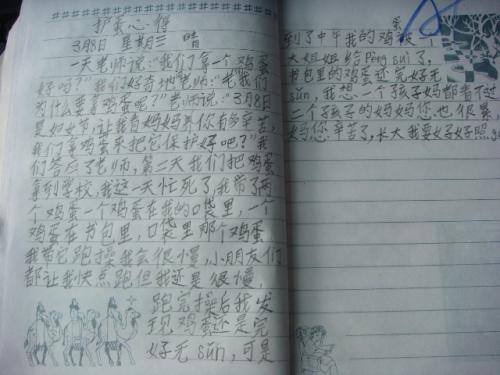 护蛋心得
3月8日 星期三 晴
一天老师说:“我们拿一个鸡蛋
好吗?”我们好奇地老师:“老我们
为什么要拿鸡蛋呢?”老师说:“3月8日
是妇女节,让我看妈妈养你有多辛苦,
我们拿鸡蛋来把它保护好吧?”我
们答应了老师,第二天我们把鸡蛋
拿到学校,我这一天忙死了,我带了两
个鸡蛋一个鸡蛋在我的口袋里,一个
鸡蛋在书包里,口袋里那个鸡蛋
我带它跑操我会很慢,小朋友们
都让我快点跑但我还是很慢,
跑完操后我发
现鸡蛋还是完
好无sǔn,可是
到了中午我的鸡被一个
大姐姐给Pèng suì了,
书包里的鸡蛋还完好无
sǔn,我想一个孩子妈都看了过
二个孩子的妈妈您也很累,
妈您辛苦了,长大我要好好照